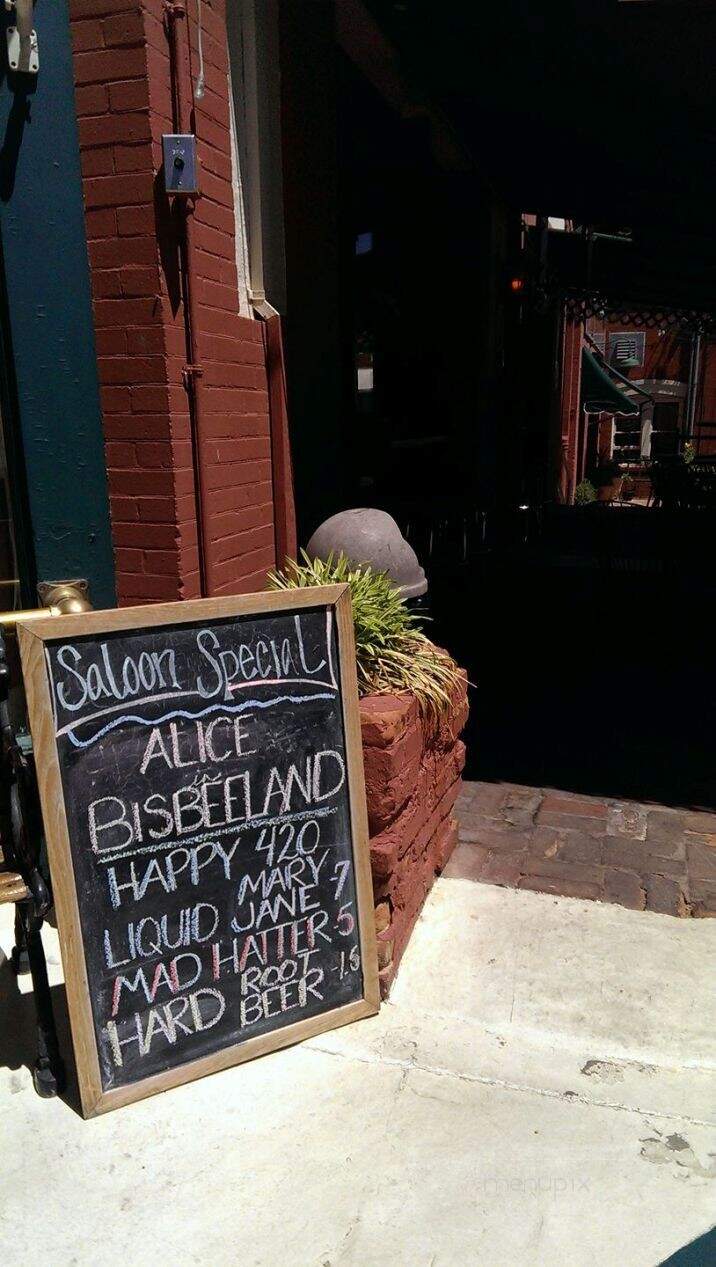 Saloon Special
ALICE
in
BISBEELAND
HAPPY 420
LIQUID MARY JANE 7
MAD HATTER 5
HARD ROOT BEER
menupix